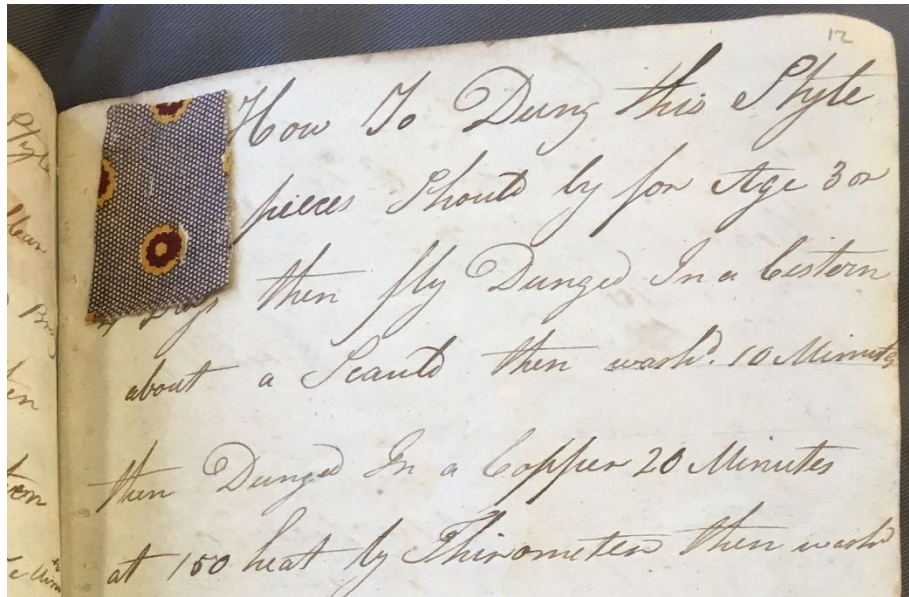 12
How To Dung this Style
pieces Should ly for Age 3 or
4 Days then fly Dunged In a Cistern
about a Scauld then wash'd. 10 Minutes
then Dunged In a Copper 20 Minutes
at 150 heat by Thirometer then wash'd